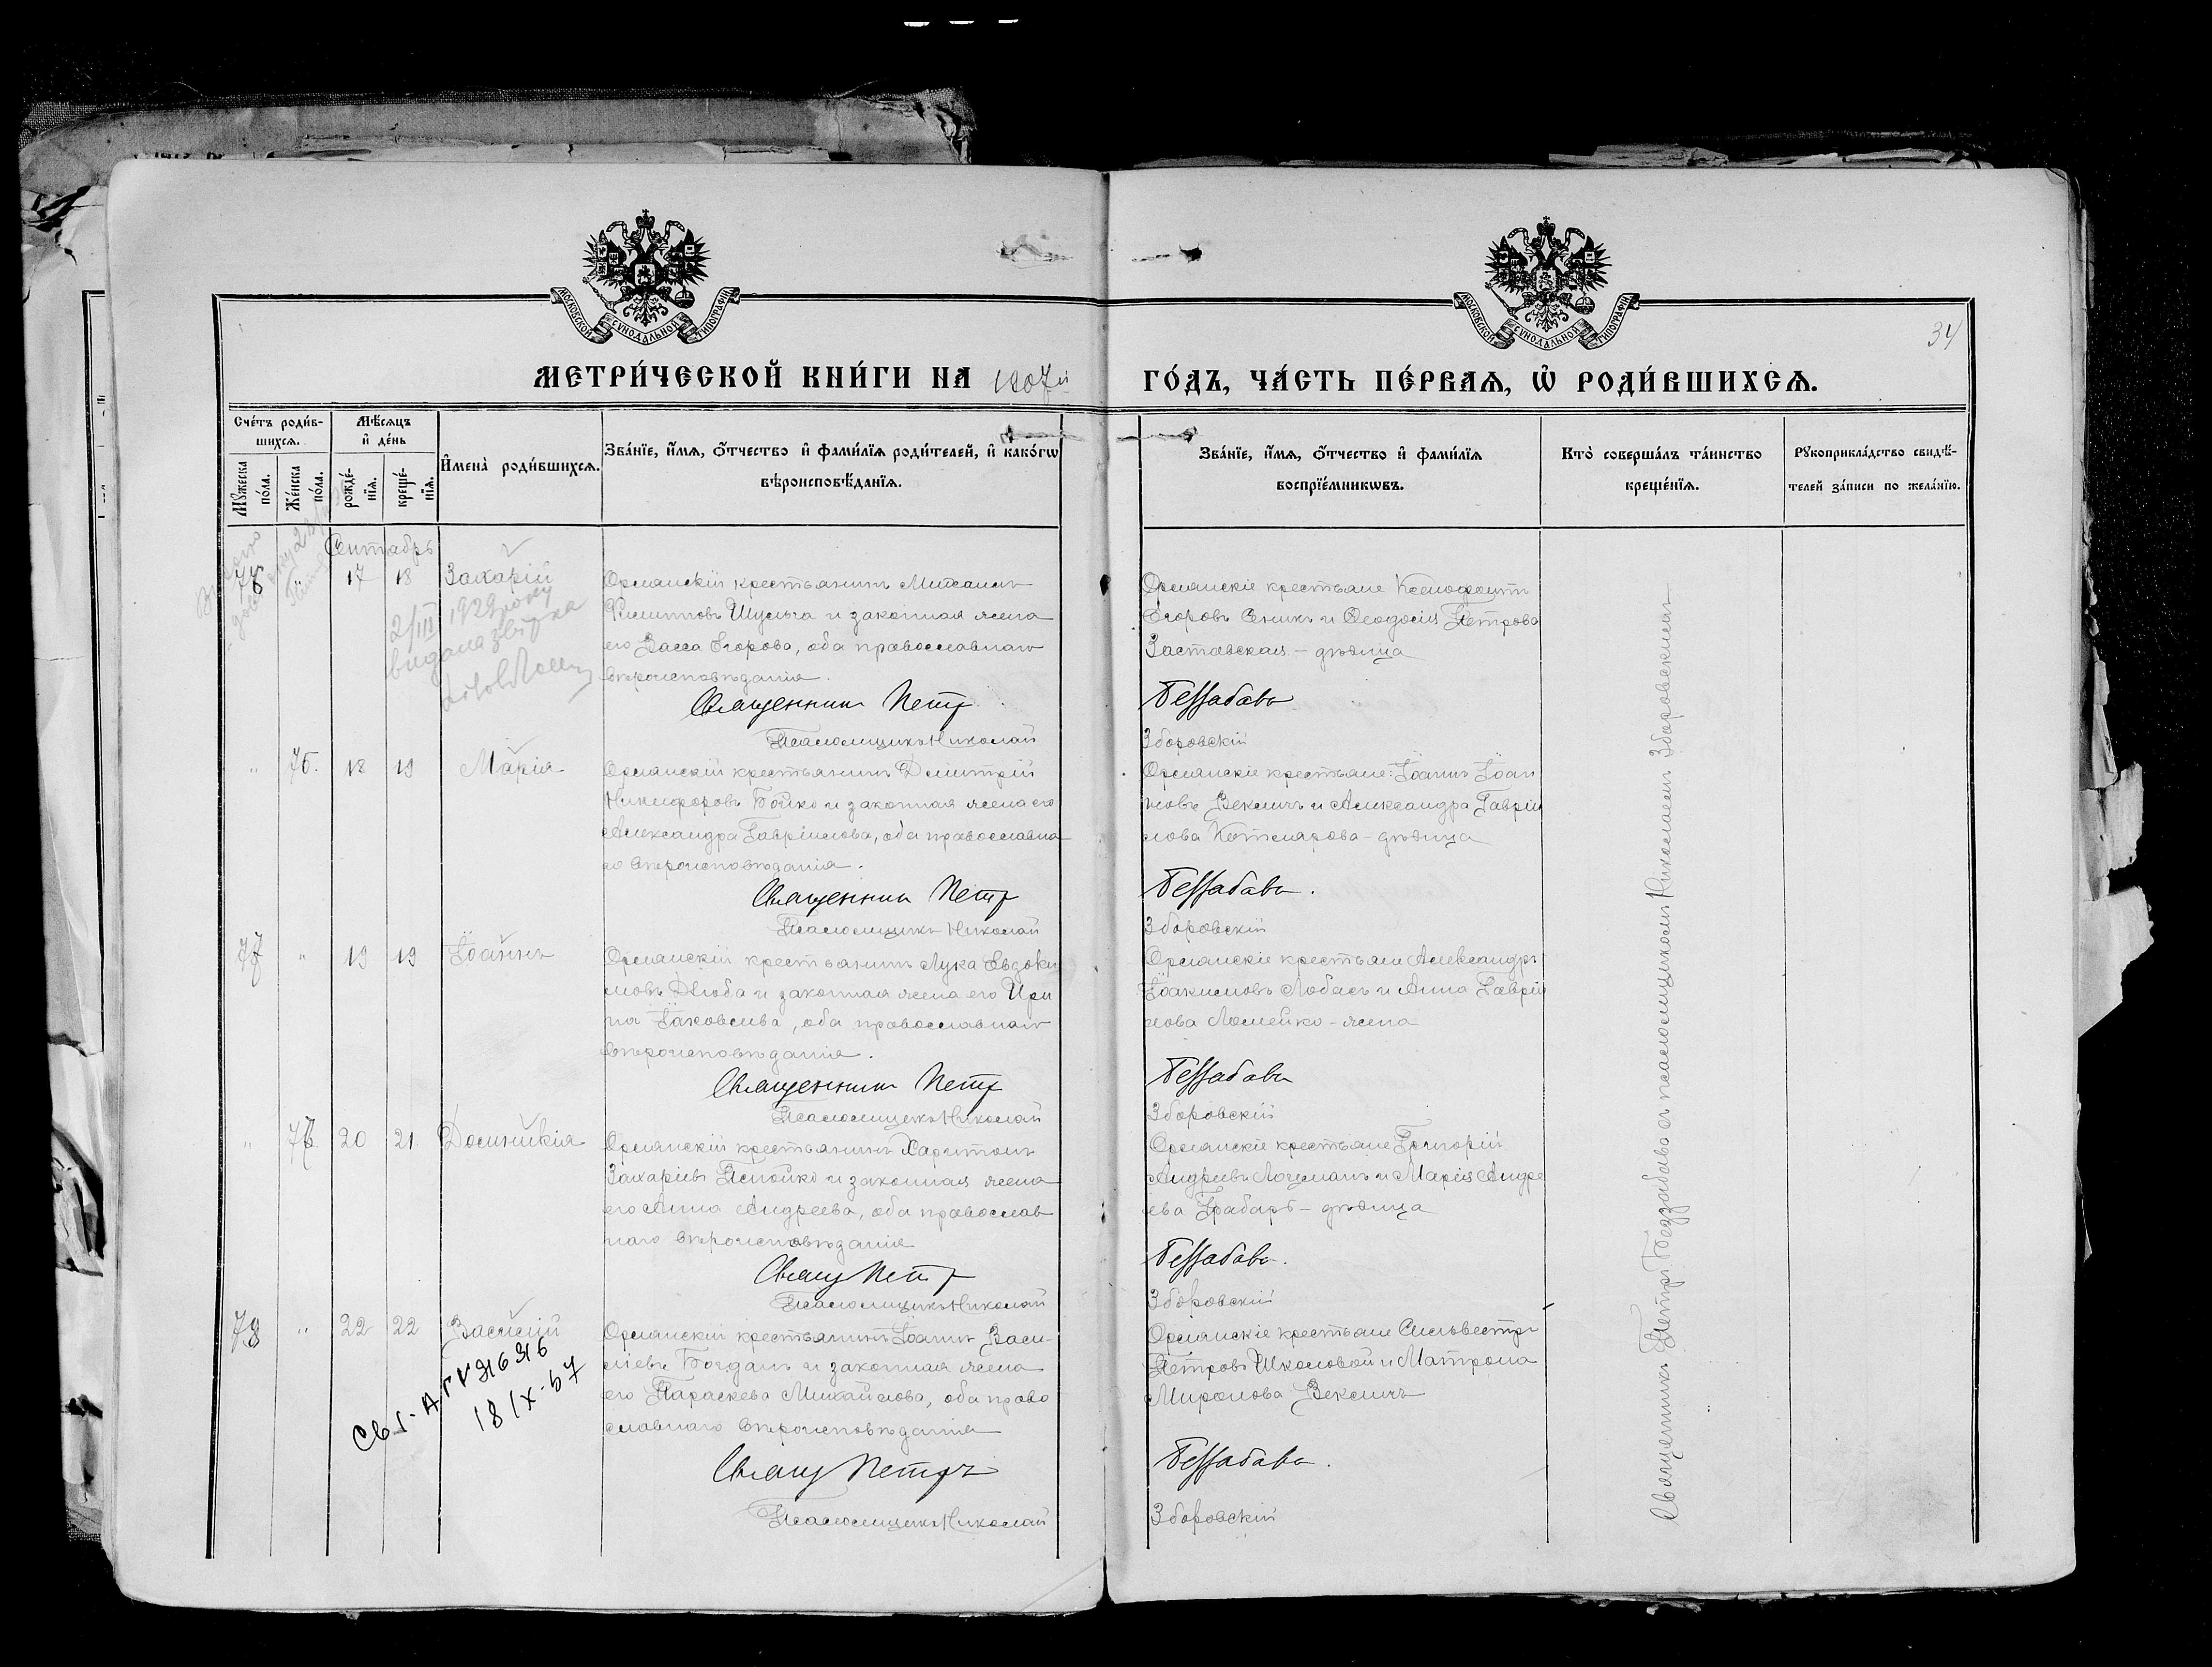 МОСКОВСКОЙ СѴНОДАЛЬНОЙ ТИПОГРАФІИ
МОСКОВСКОЙ СѴНОДАЛЬНОЙ ТИПОГРАФІИ
34
МЕТРИ́ЧЕСКОЙ КНИ́ГИ НА 1907й ГО́ДЪ, ЧА́СТЬ ПЕ́РВАЯ, Ѡ҆ РОДИ́ВШИХСЯ.
Сче́тъ роди́в-
шихся.
Мѣ́сяцъ
и҆ де́нь
Мꙋ́жеска по́ла.
Же́нска по́ла.
рожде́-
нїя.
креще́-
нїя.
И҆мена̀ роди́вшихся.
Зва́нїе, и҆́мя, ѻ҆́тчество и҆ фами́лїя роди́телей, и҆ како́гѡ
вѣроисповѣ́данїя.
Зва́нїе, и҆́мя, ѻ҆́тчество и҆ фами́лїя
воспрїе́мникѡвъ.
Кто̀ соверша́лъ та́инство
креще́нїя.
Рꙋкоприкла́дство свидѣ́-
телей за́писи по жела́нїю.
Сентябрь
76 17 18 Захарій
2/III 1929 року
видана
Орлянскій крестьянинъ Михаилъ
Филитовъ Шульга и законная жена
его Васса Егорова, оба православнаго
вѣроисповѣданія.
Священник Петр
Псаломщикъ Николай
Орлянскіе крестьяне Ксенофонтъ
Егоровъ Сникъ и Ѳеодосія Петрова
Заставская - дѣвица
Беззабава
Зборовскій
" 76. 18 19 Марія
Орлянскій крестьянинъ Димитрій
Никифоровъ Бойко и законная жена его
Александра Гавріилова, оба православна
го вѣроисповѣданія.
Священник Петр
Псаломщикъ Николай
Орлянскіе крестьяне: Іоаннъ Іоан
новъ Векличъ и Александра Гавріи
лова Котлярова - дѣвица
Беззабава.
Зборовскій
77 " 19 19 Іоаннъ
Орлянскій крестьянинъ Лука Евдоки
мовъ Дзюба и законная жена его Ири
на Іаковлева, оба православнаго
вѣроисповѣданія.
Священник Петр
Псаломщикъ Николай
Орлянскіе крестьяне Александръ
Іоакимовъ Лобасъ и Анна Гавріи
лова Ломейко - жена
Беззабава
Зборовскій
" 77. 20 21 Домникія
Орлянскій крестьянинъ Харитонъ
Захаріевъ Яснойко и законная жена
его Анна Андреева, оба православ
наго вѣроисповѣданія
Свящ Петр
Псаломщикъ Николай
Орлянскіе крестьяне Григорій
Андреевъ Лоцманъ и Марія Андре
ева Грабарь - дѣвица
Беззабава.
Зборовскій
78 " 22 22 Василій
18/IX-57
Орлянскій крестьянинъ Іоаннъ Васи-
ліевъ Богданъ и законная жена
его Параскева Михайлова, оба право
славнаго вѣроисповѣданія
Свящ Петръ
Псаломщикъ Николай
Орлянскіе крестьяне Сильвестръ
Петровъ Школовой и Матрона
Миронова Векличъ
Беззабава.
Зборовскій
Священникъ Петръ Беззабава съ псаломщикомъ Николаемъ Зборовскимъ